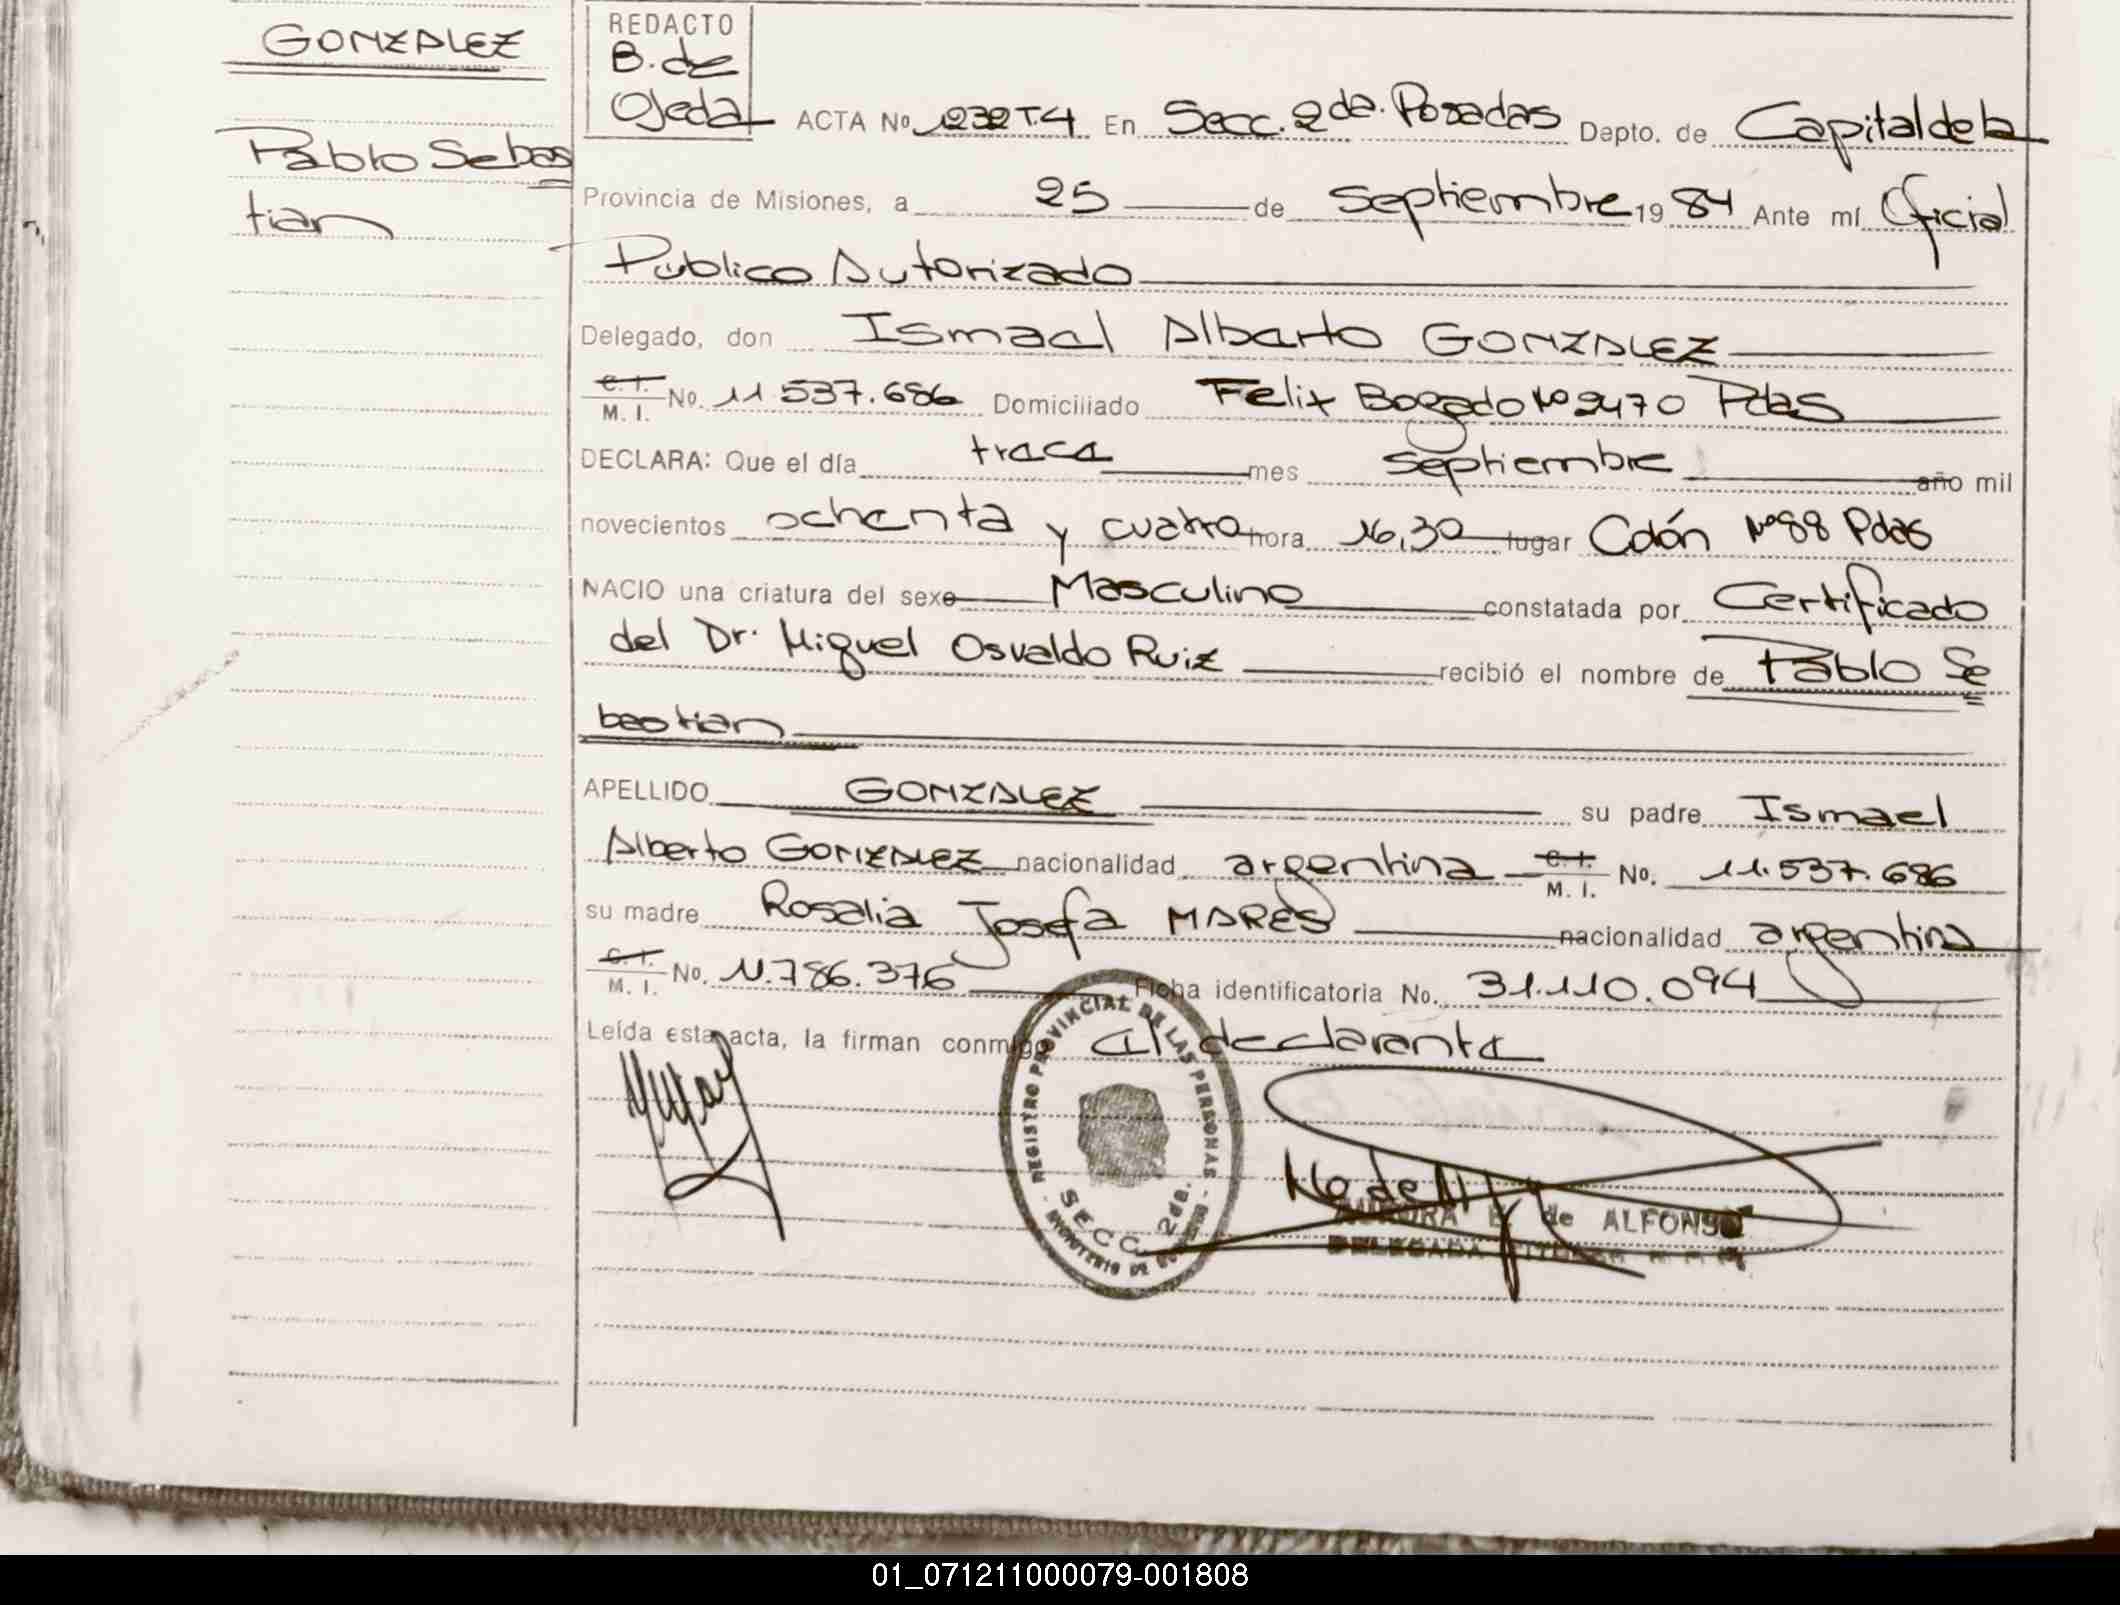 GONZALEZ
Pablo Sebas
tian
REDACTO
B. de
Ojeda
ACTA No 1232 T.4 En Secc. 2da. Posadas Dapto. de Capital de la
Provincia de Misiones, a 25 de Septiembre 19 84 Ante mí Oficial
Público Autorizado
Delegado, don Ismael Alberto GONZALEZ
C. I.
M. I. No. 11.537.686 Domiciliado Felix Bogado Nº 2470 Pdas
DECLARA: Que el día trece mes Septiembre año mil
novecientos ochenta y cuatro hora 16,30 lugar Colón Nº 88 Pdas
NACIO una criatura del sexo Masculino constatada por Certificado
del Dr. Miguel Osvaldo Ruiz recibió el nombre de Pablo Se
bastian
APELLIDO GONZALEZ su padre Ismael
Alberto GONZALEZ nacionalidad argentina C. I.
M. I. No. 11.537.686
su madre Rosalia Josefa MARES nacionalidad argentina
C. I.
M. I. No. 11.786.376 Ficha identificatoria No. 31.110.094
Leída esta acta, la firman conmigo el declarante
REGISTRO PROVINCIAL DE LAS PERSONAS
SECC. 2da.
MINISTERIO DE GOBIERNO
AURORA de ALFONSO
DELEGADA TITULAR
01_071211000079-001808